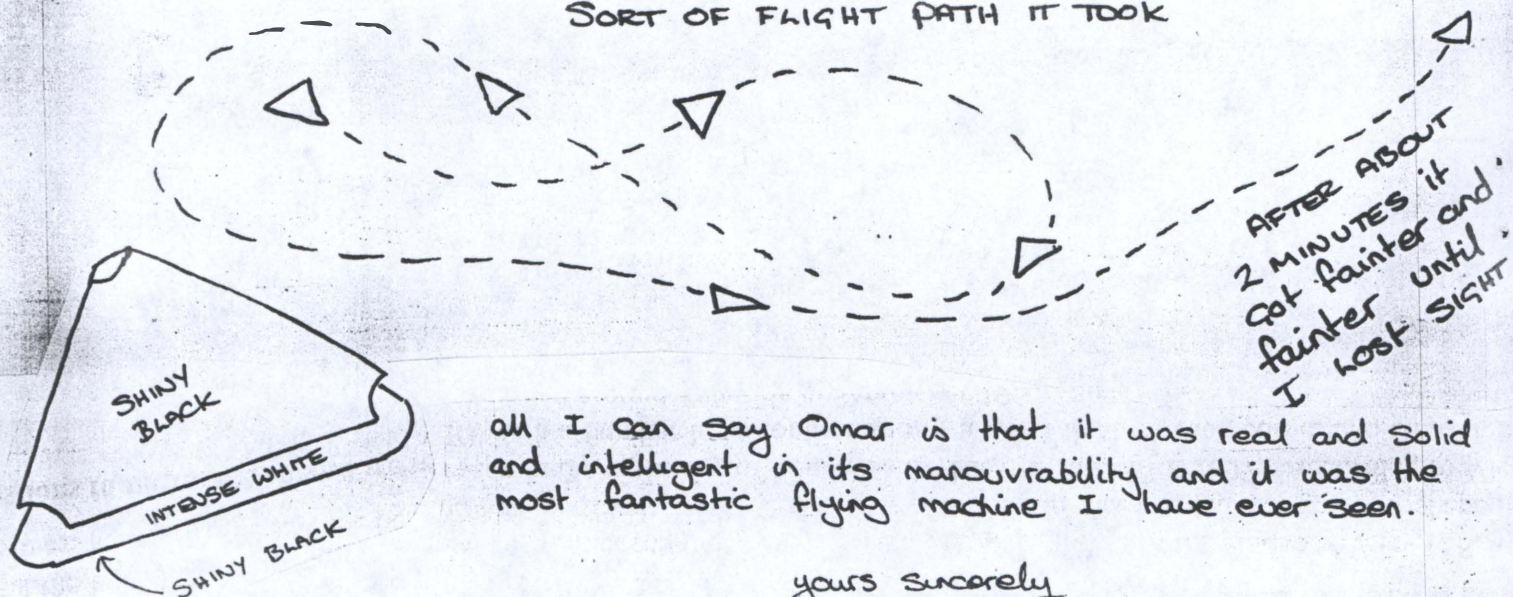 SORT OF FLIGHT PATH IT TOOK
AFTER ABOUT
2 MINUTES it
got fainter and
fainter until
I LOST SIGHT
SHINY
BLACK
INTENSE WHITE
SHINY BLACK
all I can say Omar is that it was real and solid
and intelligent in its manouvrability and it was the
most fantastic flying machine I have ever seen.
yours sincerely